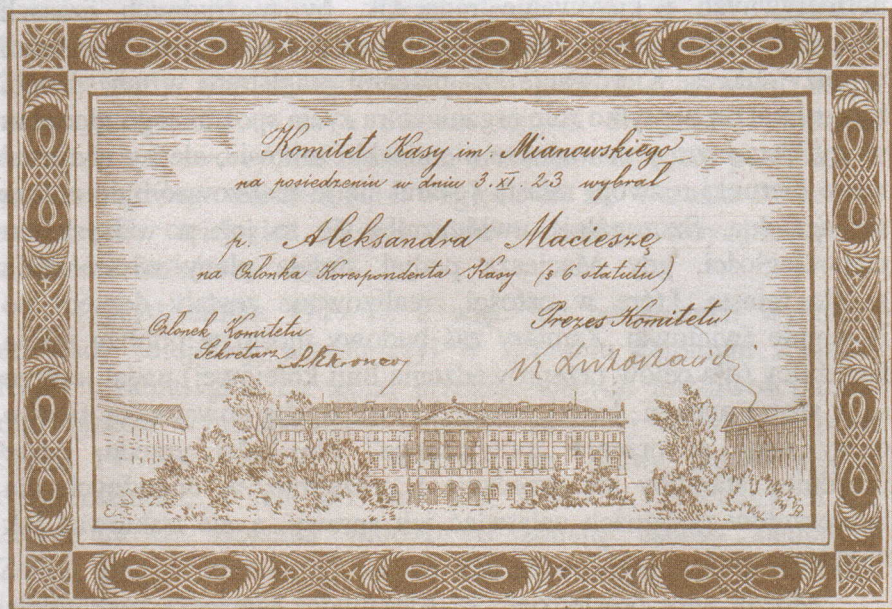 Komitet Kasy im. Mianowskiego
na posiedzeniu w dniu 3. XI. 23 wybrał
p. Aleksandra Macieszę
na Członka Korespondenta Kasy (§ 6 statutu)
Członek Komitetu
Sekretarz
Prezes Komitetu